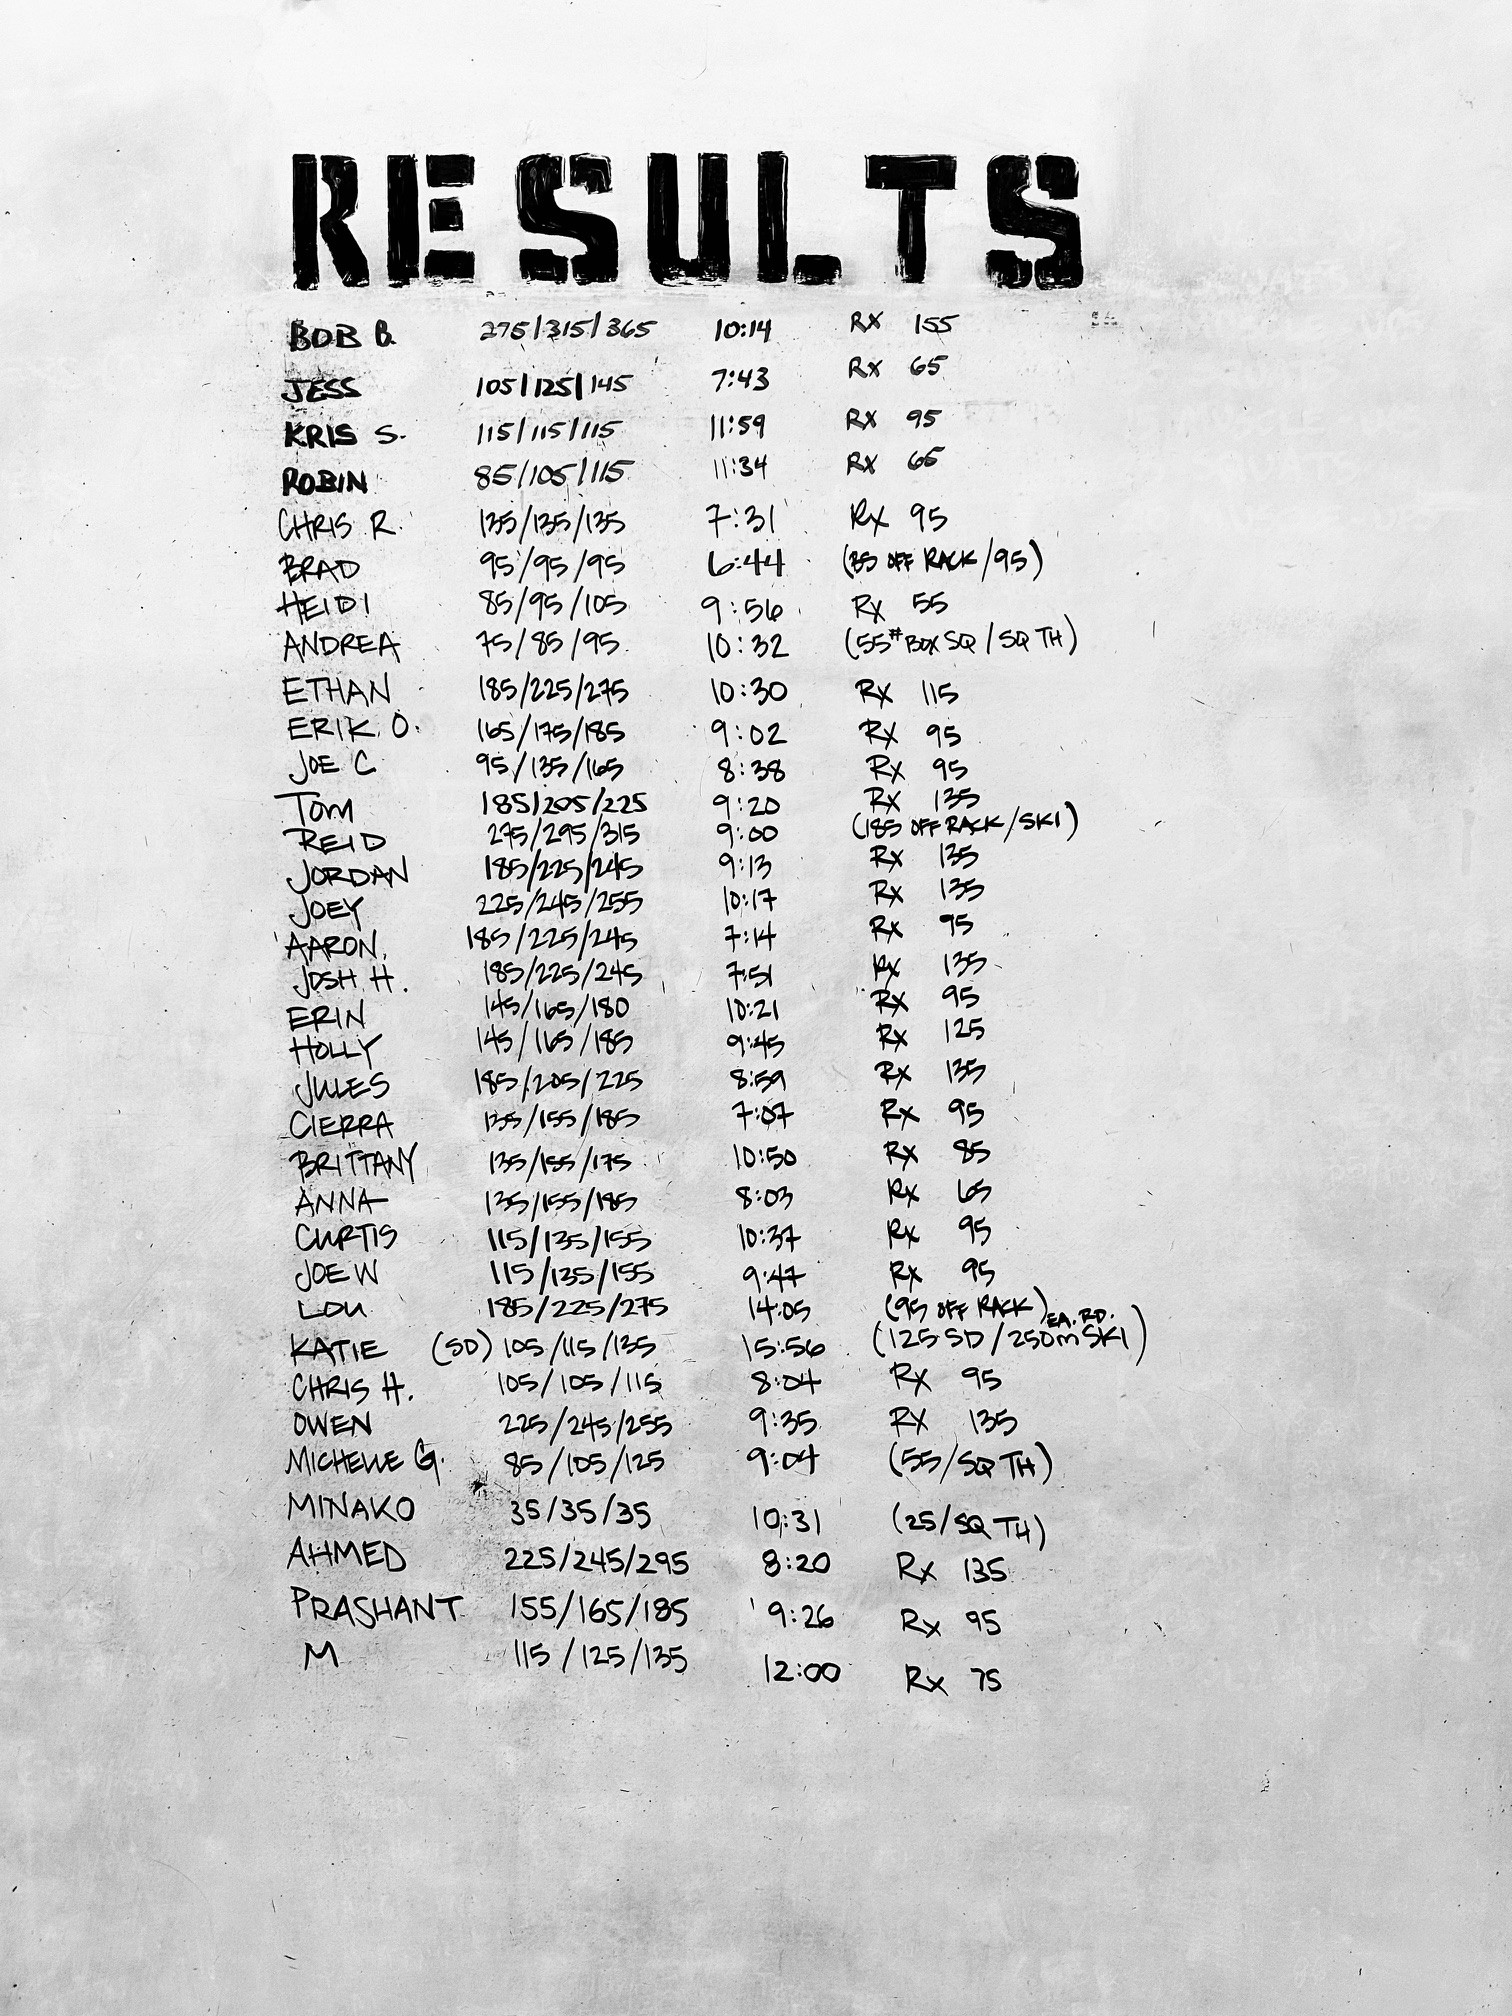 RESULTS
BOB B 275/315/365 10:14 RX 155
JESS 105/125/145 7:43 RX 65
KRIS S. 115/115/115 11:59 RX 95
ROBIN 85/105/115 11:34 RX 65
CHRIS R. 135/135/135 7:31 RX 95
BRAD 95/95/95 6:44 (35 OFF RACK/95)
HEIDI 85/95/105 9:56 RX 55
ANDREA 75/85/95 10:32 (55# BOX SQ/SQ TH)
ETHAN 185/225/275 10:30 RX 115
ERIK O. 165/175/185 9:02 RX 95
JOE C 95/135/165 8:38 RX 95
Tom 185/205/225 9:20 RX 135
REID 275/295/315 9:00 (185 OFF RACK/SKI)
JORDAN 185/225/245 9:13 RX 135
JOEY 225/245/255 10:17 RX 135
AARON. 185/225/245 7:14 RX 95
JOSH H. 185/225/245 7:51 RX 135
ERIN 145/165/180 10:21 RX 95
HOLLY 145/165/185 9:45 RX 125
JULES 185/205/225 8:59 RX 135
CIERRA 135/155/185 7:07 RX 95
BRITTANY 135/155/175 10:50 RX 85
ANNA 135/155/185 8:03 RX 65
CURTIS 115/135/155 10:37 RX 95
JOE W 115/135/155 9:47 RX 95
LOU 185/225/275 14:05 (95 OFF RACK) EA. RD.
KATIE (SD) 105/115/135 15:56 (125 SD/250m SKI)
CHRIS H. 105/105/115 8:04 RX 95
OWEN 225/245/255 9:35 RX 135
MICHELLE G. 85/105/125 9:04 (55/SQ TH)
MINAKO 35/35/35 10:31 (25/SQ TH)
AHMED 225/245/295 8:20 Rx 135
PRASHANT 155/165/185 9:26 Rx 95
M 115/125/135 12:00 Rx 75